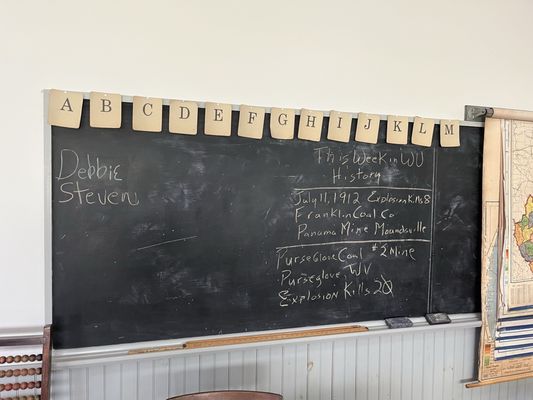 A B C D E F G H I J K L M
Debbie
Steven
This Week in WV
History
July 11, 1912 Explosion Kills 8
Franklin Coal Co
Panama Mine Moundsville
Purseglove Coal #2 Mine
Purseglove, WV
Explosion Kills 20